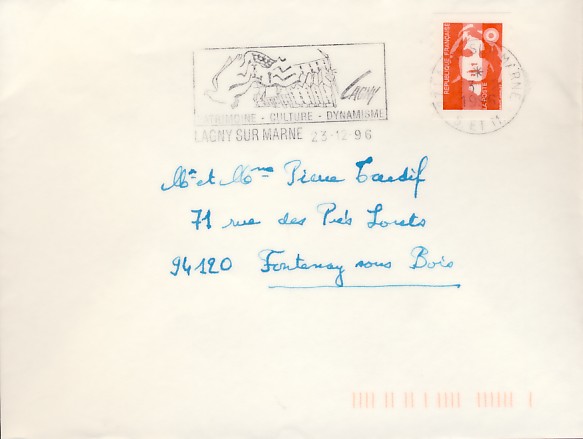 LAGNY
PATRIMOINE - CULTURE - DYNAMISME
LAGNY SUR MARNE 23-12-96
RÉPUBLIQUE FRANÇAISE
LA POSTE
MARNE
S. ET M.
Mr et Mme Pierre Tardif
71 rue des Prés Lorets
94120 Fontenay sous Bois